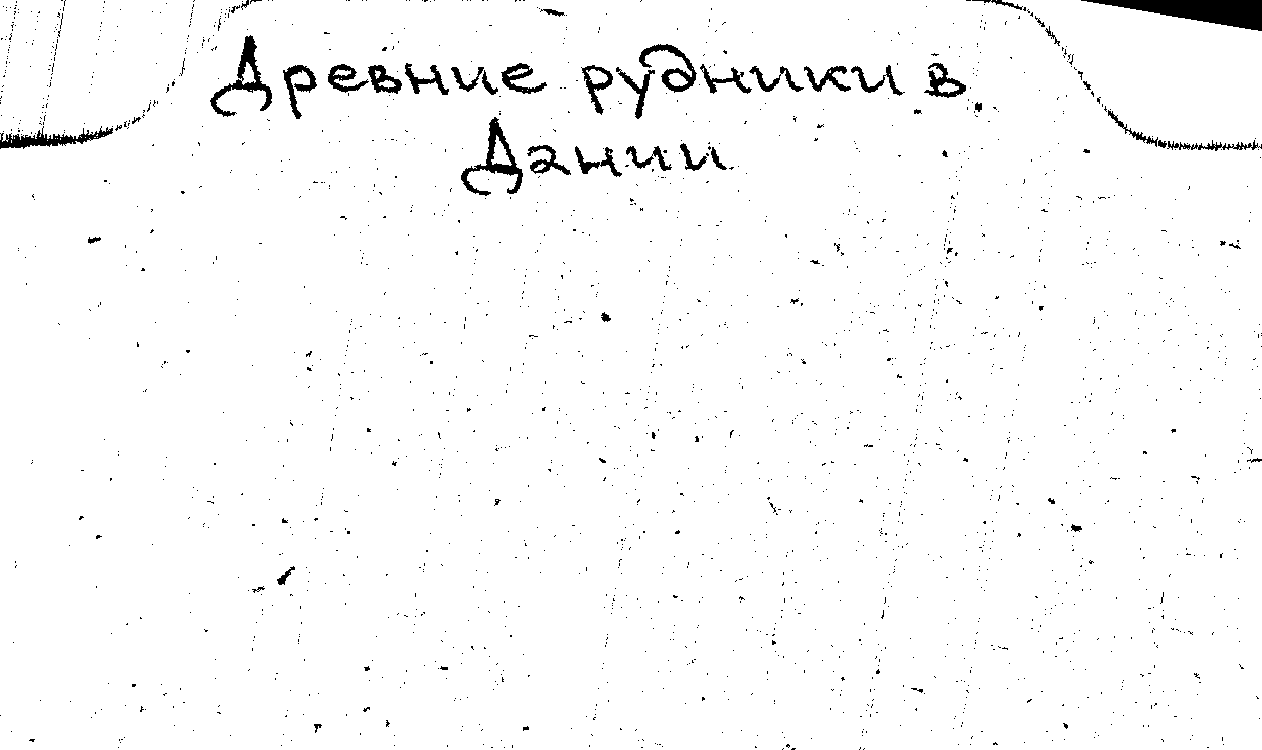 Древние рудники в
Дании